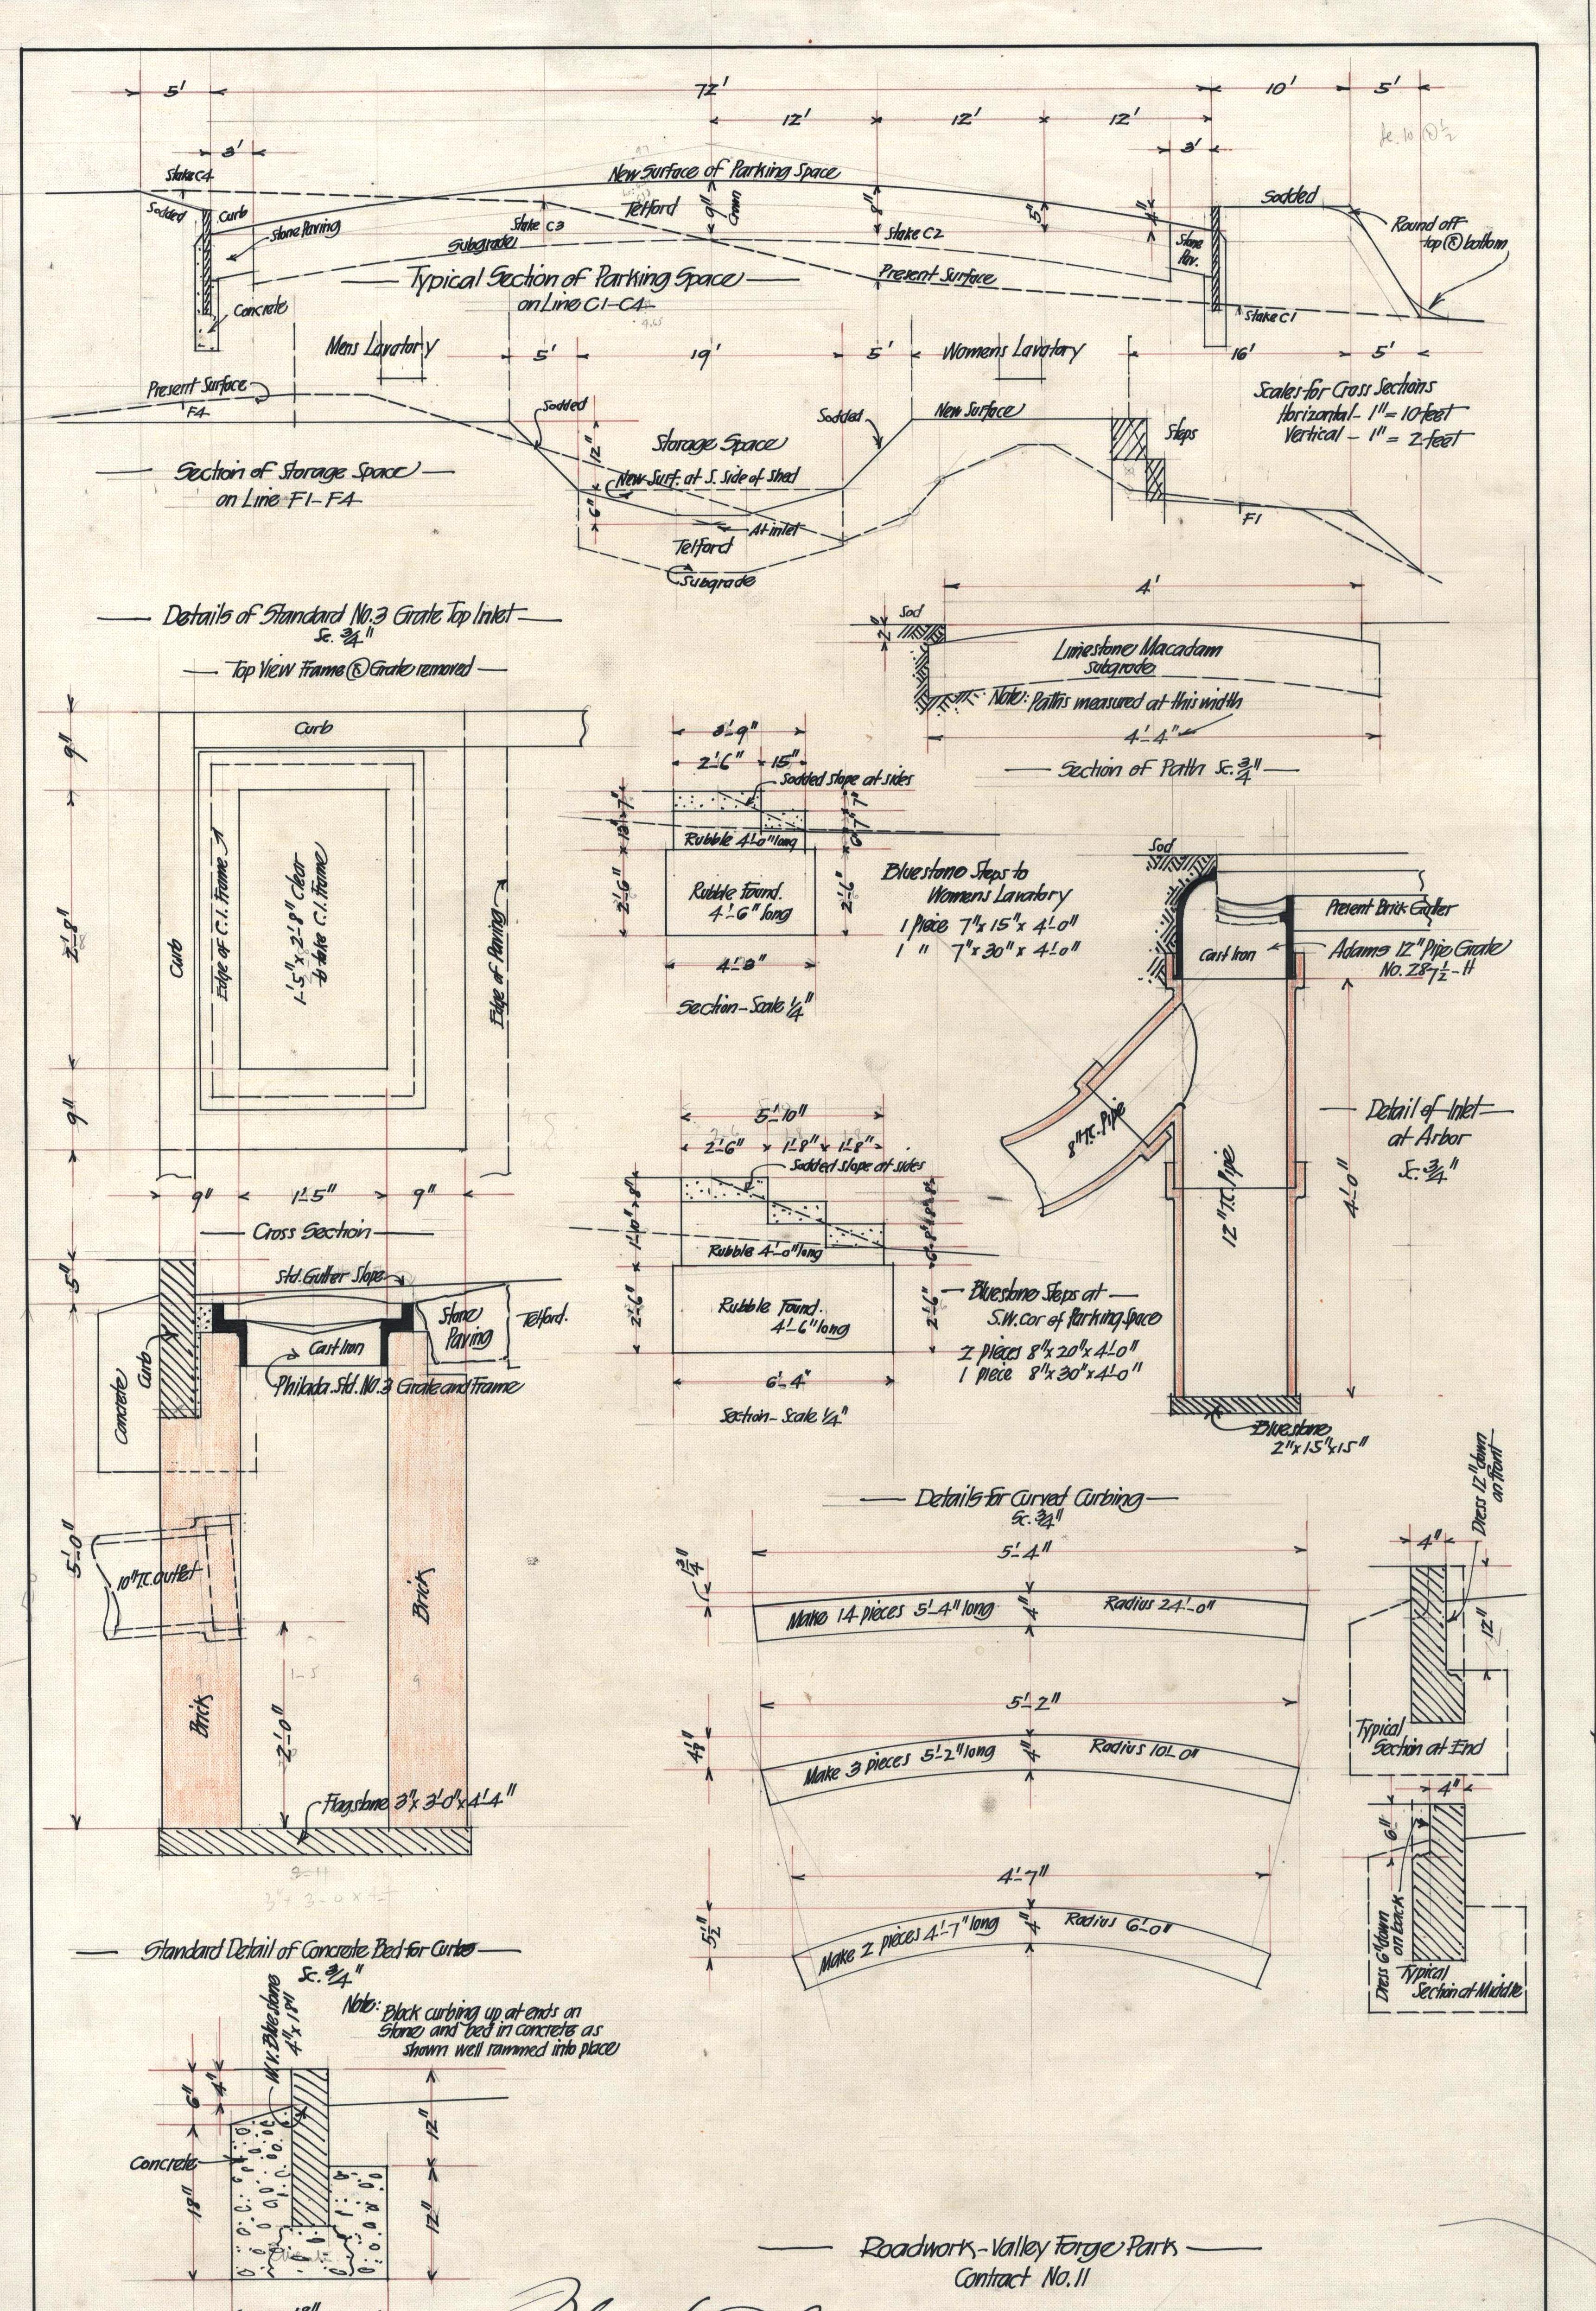 5' 72' 10' 5'
12' 12' 12'
3' 3'
Stake C4
New Surface of Parking Space
Sodded Curb
Stone Paving
Stake C3
Telford
9" Crown
8"
5"
4"
Subgrade
Stake C2
Stone Pav.
Sodded
Round off
top & bottom
Typical Section of Parking Space
on Line C1-C4
Present Surface
Concrete
Stake C1
Mens Lavatory 5' 19' 5' Womens Lavatory 16' 5'
Present Surface
F4
Sodded
Sodded
New Surface
Steps
Scales for Cross Sections
Horizontal - 1" = 10 feet
Vertical - 1" = 2 feet
Storage Space
12"
New Surf. at S. side of Shed
6"
At inlet
Telford
Subgrade
F1
Section of Storage Space
on Line F1-F4
Details of Standard No. 3 Grate Top Inlet
Sc. 3/4"
Top View Frame & Grate removed
Curb
9"
2'-8"
9"
Curb
Edge of C.I. Frame
1'-5" x 2'-8" Clear
to take C.I. Frame
Edge of Paving
9" 1'-5" 9"
4'
Sod
2"
Limestone Macadam
Subgrade
Note: Paths measured at this width
4'-4"
Section of Path Sc. 3/4"
3'-9"
2'-6" 15"
Sodded slope at sides
7"
7"
7"
Rubble 4'-0" long
2'-6"
Rubble Found.
4'-6" long
2'-6"
4'-3"
Section - Scale 1/4"
Bluestone Steps to
Womens Lavatory
1 piece 7" x 15" x 4'-0"
1 " 7" x 30" x 4'-0"
Sod
Present Brick Gutter
Cast Iron
Adams 12" Pipe Grate
No. 287 1/2 - H
8" T.C. Pipe
12" T.C. Pipe
4'-0"
Detail of Inlet
at Arbor
Sc. 3/4"
Bluestone
2" x 15" x 15"
5'-10"
2'-6" 1'-8" 1'-8"
Sodded slope at sides
8"
1'-10"
Rubble 4'-0" long
2'-6"
Rubble Found.
4'-6" long
2'-6"
6'-4"
Section - Scale 1/4"
Bluestone Steps at
S.W. cor of Parking Space
2 pieces 8" x 20" x 4'-0"
1 piece 8" x 30" x 4'-0"
Cross Section
5"
Std. Gutter Slope
Stone
Paving
Telford.
Cast Iron
Curb
Concrete
Philada. Std. No. 3 Grate and Frame
5'-0"
10" T.C. outlet
Brick
Brick
2'-0"
Flagstone 3" x 3'-0" x 4'-4"
Details for Curved Curbing
Sc. 3/4"
5'-4"
1 3/4"
Make 14 pieces 5'-4" long 4" Radius 24'-0"
5'-2"
4 1/8"
Make 3 pieces 5'-2" long 4" Radius 10'-0"
4'-7"
5 1/2"
Make 2 pieces 4'-7" long 4" Radius 6'-0"
Dress 12" down
on front
4"
12"
Typical
Section at End
4"
6"
Dress 6" down
on back
Typical
Section at Middle
Standard Detail of Concrete Bed for Curbs
Sc. 3/4"
Note: Block curbing up at ends on
Stone and bed in concrete as
shown well rammed into place
W.V. Bluestone
4" x 18"
6"
4"
12"
Concrete
18"
12"
18"
Roadwork - Valley Forge Park
Contract No. 11